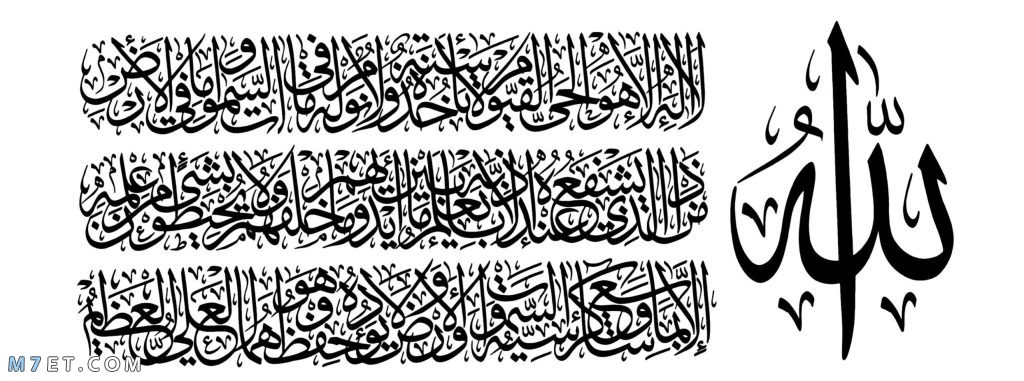 الله
لا إله إلا هو الحي القيوم لا تأخذه سنة ولا نوم له ما في السموات وما في الأرض
من ذا الذي يشفع عنده إلا بإذنه يعلم ما بين أيديهم وما خلفهم ولا يحيطون بشيء من علمه
إلا بما شاء وسع كرسيه السموات والأرض ولا يؤده حفظهما وهو العلي العظيم
M7ET.COM